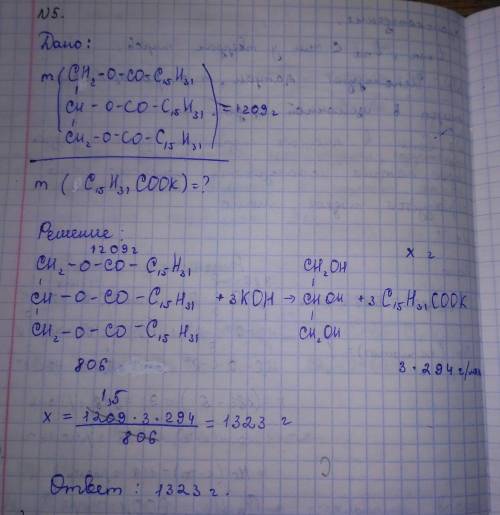 N5.
Дано:
m ( CH₂-O-CO-C₁₅H₃₁
CH - O-CO - C₁₅H₃₁ ) = 1209 г
CH₂-O-CO - C₁₅H₃₁
m ( C₁₅H₃₁COOK) = ?
Решение:
1209 г x г
CH₂ - O - CO - C₁₅H₃₁ CH₂OH
CH - O - CO - C₁₅H₃₁ + 3KOH → CHOH + 3 C₁₅H₃₁COOK
CH₂ - O - CO - C₁₅H₃₁ CH₂OH
806 3 · 294 г/моль
1,5
x = 1209 · 3 · 294 / 806 = 1323 г
Ответ : 1323 г.